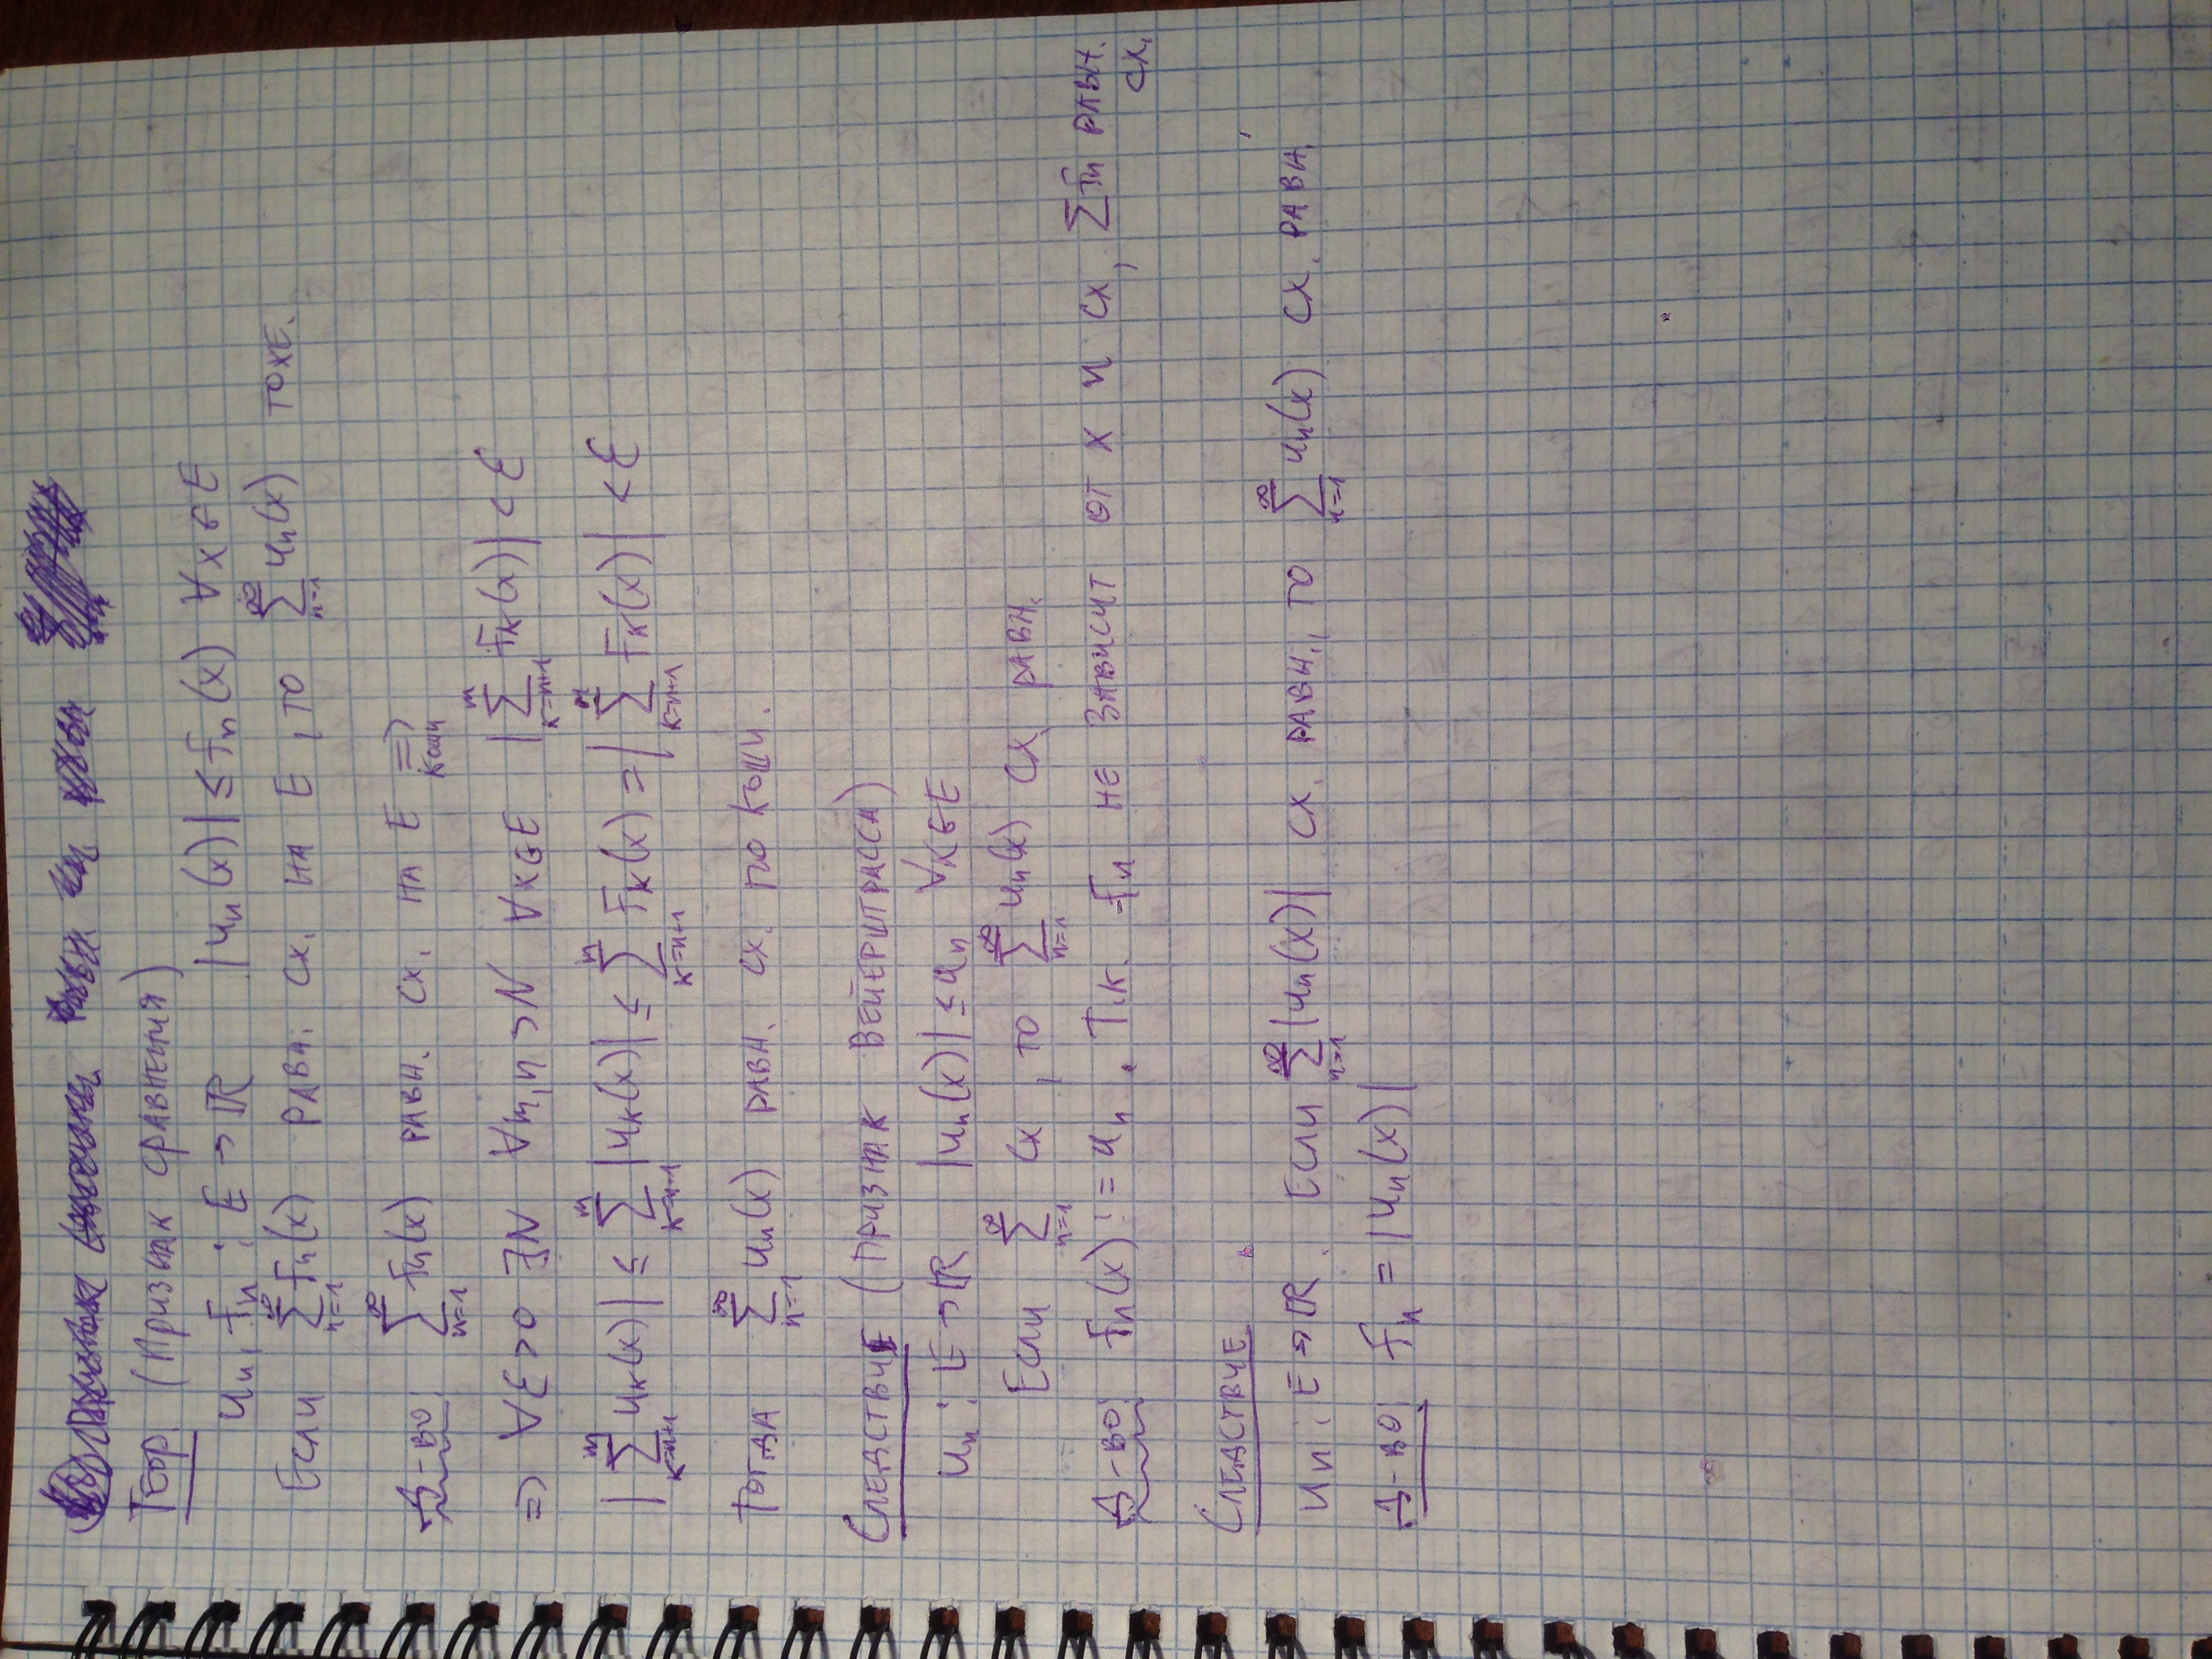 Теор (Признак сравнения)
u_n, f_n : E → ℝ |u_n(x)| ≤ f_n(x) ∀x∈E
Если ∑_{n=1}^∞ f_n(x) равн. сх. на E, то ∑_{n=1}^∞ u_n(x) тоже.
Д-во: ∑_{n=1}^∞ f_n(x) равн. сх. на E ⇒_{Коши}
⇒ ∀ε>0 ∃N ∀m,n>N ∀x∈E |∑_{k=n+1}^m f_k(x)| < ε
|∑_{k=n+1}^m u_k(x)| ≤ ∑_{k=n+1}^m |u_k(x)| ≤ ∑_{k=n+1}^m f_k(x) = |∑_{k=n+1}^m f_k(x)| < ε
Тогда ∑_{n=1}^∞ u_n(x) равн. сх. по Коши.
Следствие (признак Вейерштрасса)
u_n : E → ℝ |u_n(x)| ≤ a_n ∀x∈E
Если ∑_{n=1}^∞ сх, то ∑_{n=1}^∞ u_n(x) сх. равн.
Д-во: f_n(x) := a_n. Т.к. f_n не зависит от x и сх, ∑f_n равн.
сх.
Следствие
u_n : E → ℝ. Если ∑_{n=1}^∞ |u_n(x)| сх. равн., то ∑_{n=1}^∞ u_n(x) сх. равн.
Д-во: f_n = |u_n(x)|